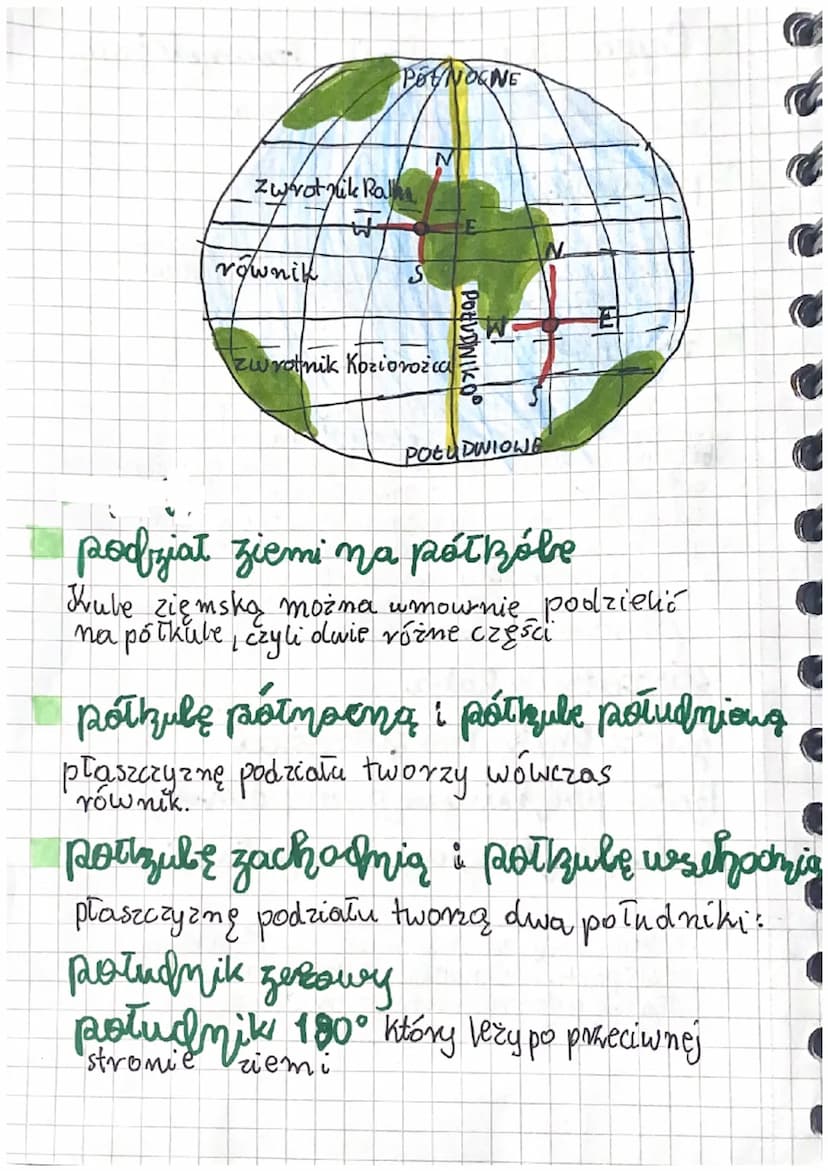 PÓŁNOCNE
N
zwrotnik Raka
W E
S
równik
N
W E
S
POŁUDNIK 0°
zwrotnik Koziorożca
POŁUDNIOWE
podział ziemi na półkóle
Kule zięmską można umownie podzielić
na półkule, czyli dwie różne części
półkulę północną i półkule południową
płaszczyznę podziału tworzy wówczas
równik.
połkulę zachodnią i połkulę wschodnią
płaszczyznę podziału tworzą dwa południki:
południk zerowy
południk 180° który leży po przeciwnej
stronie ziemi